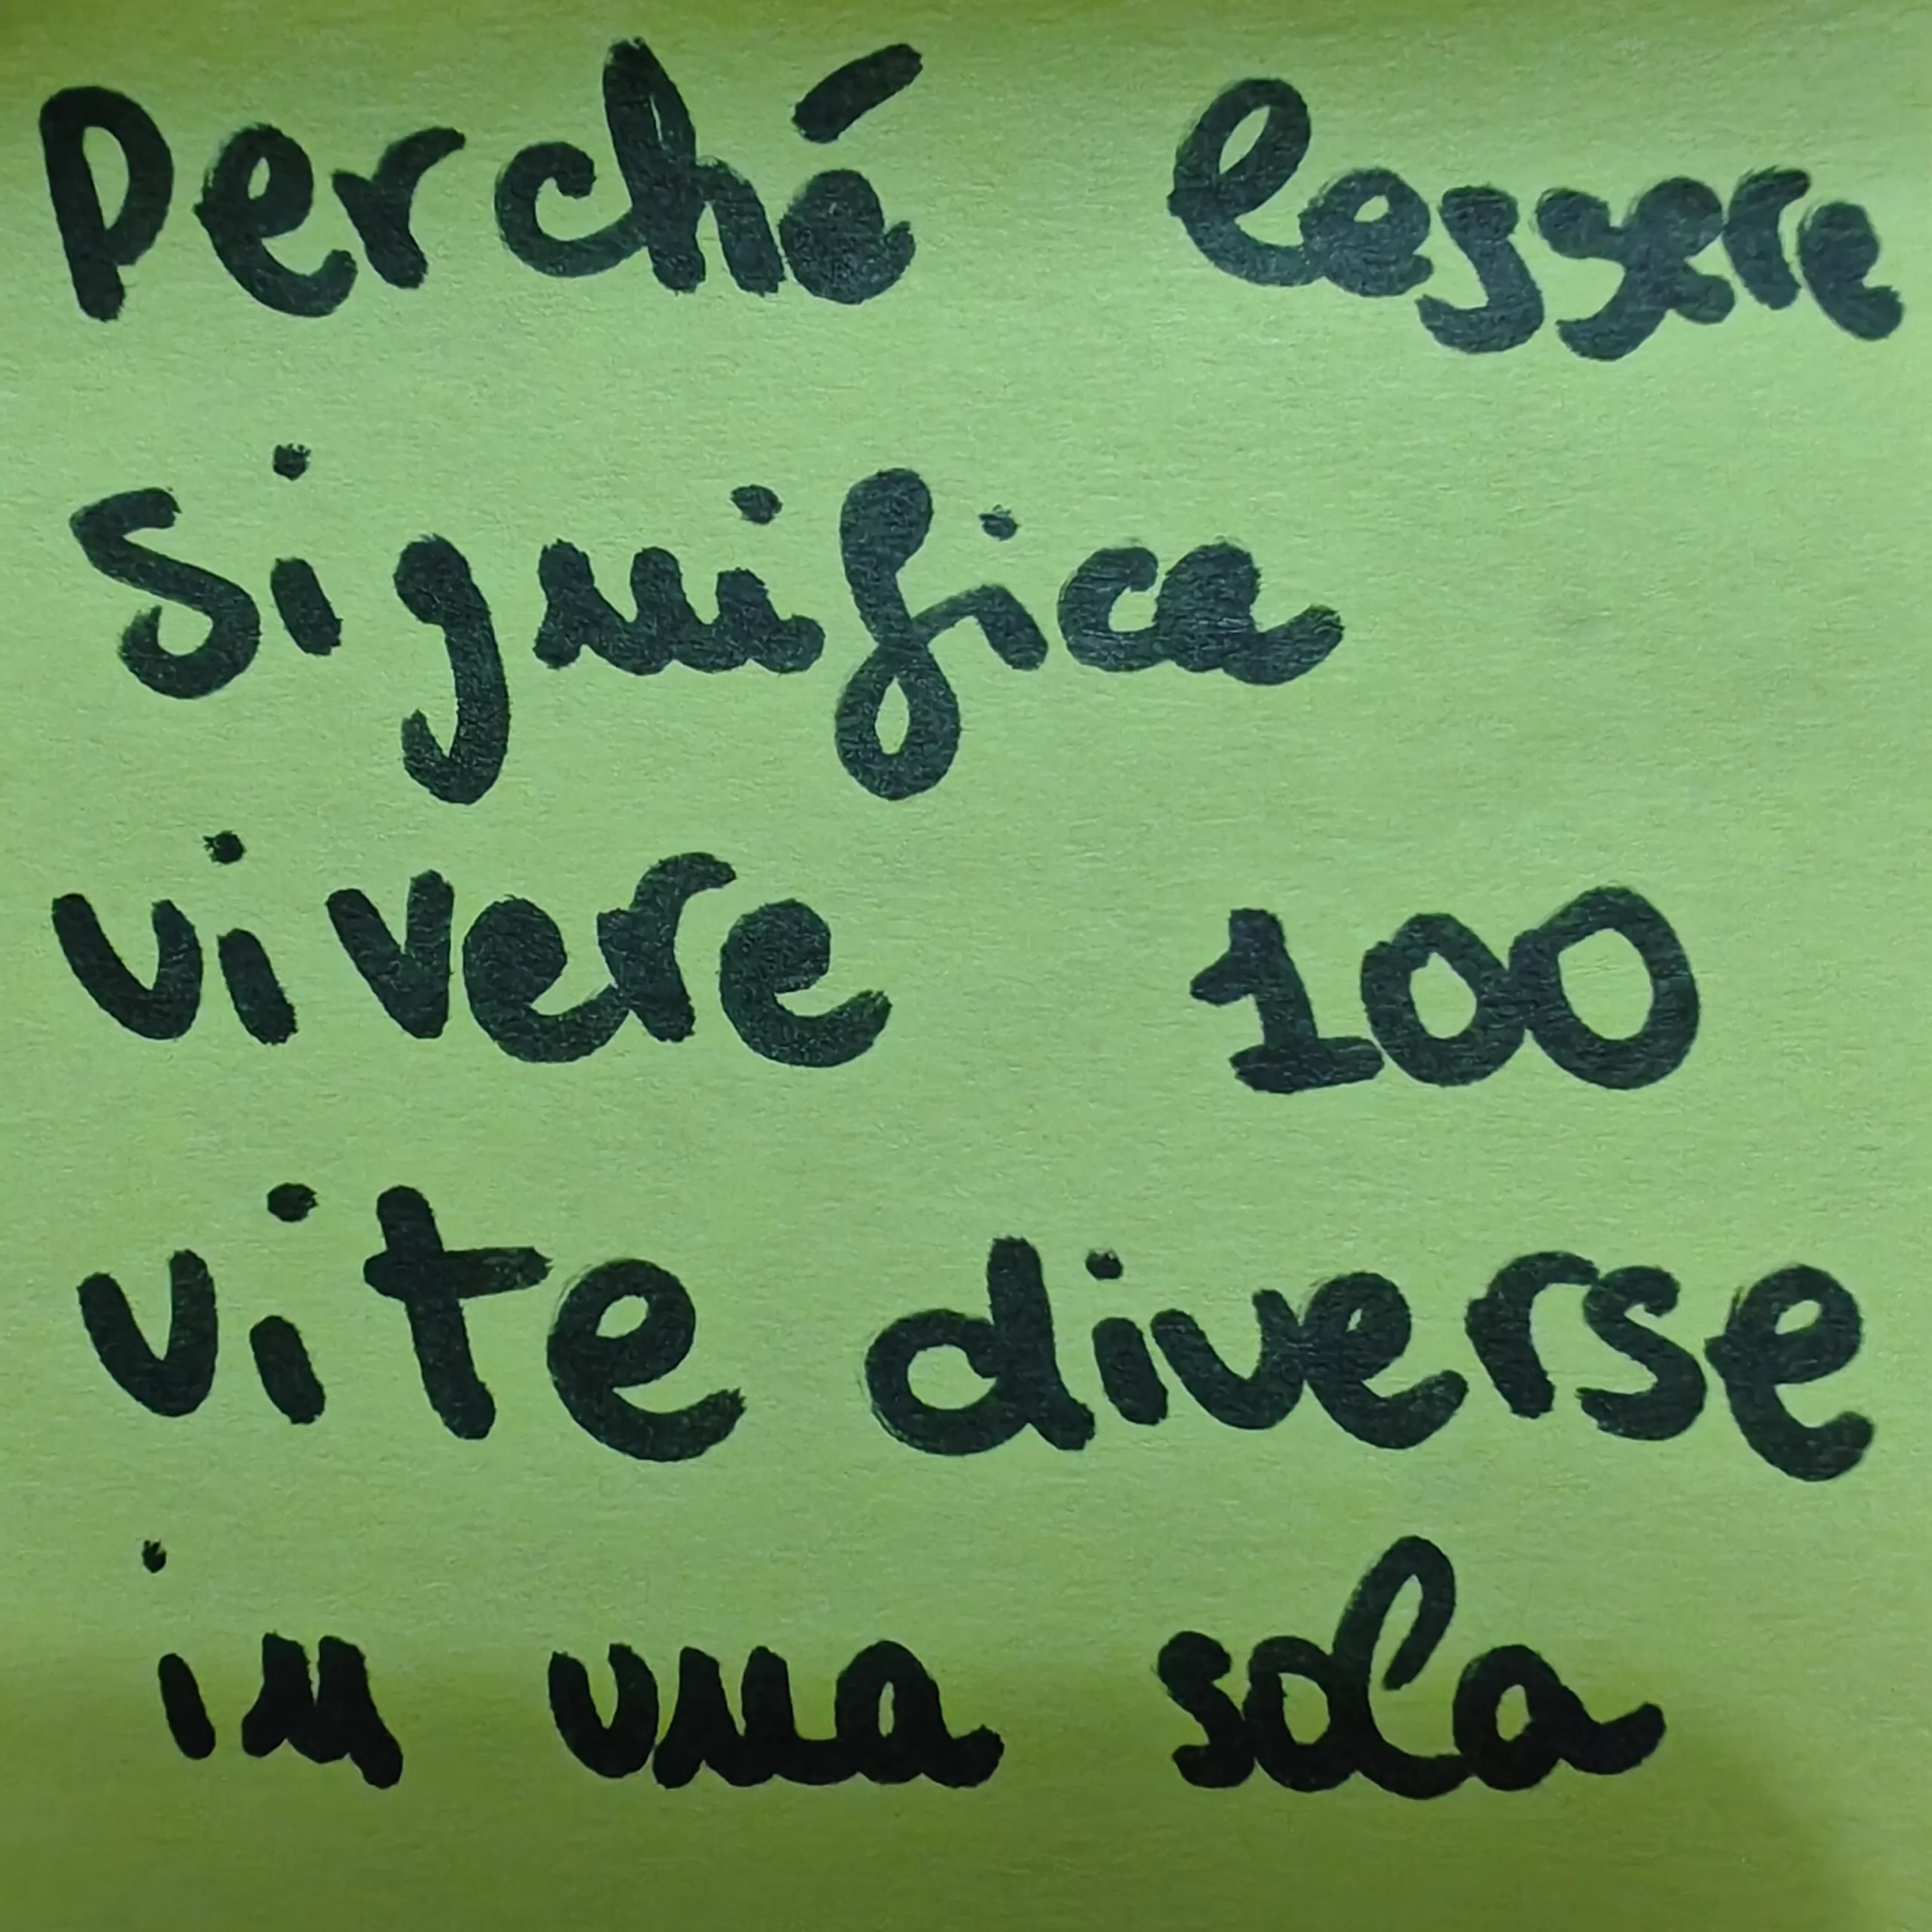 Perché leggere
significa
vivere 100
vite diverse
in una sola